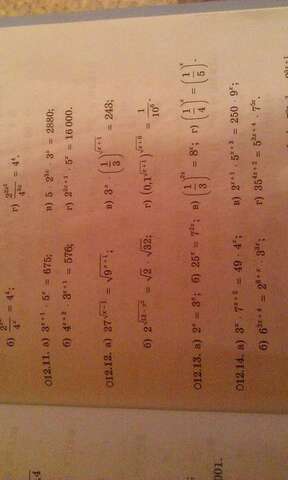 б) 2^{2x^2}/4^x = 4^x; г) 2^{2x^2}/4^{3x} = 4^x.
О12.11. а) 3^{x+1} · 5^x = 675; в) 5 · 2^{3x} · 3^x = 2880;
б) 4^{x+2} · 3^{x+1} = 576; г) 2^{2x+1} · 5^x = 16 000.
О12.12. а) 27^{√(x−1)} = √(9^{x+1}); в) 3^x · (1/3)^{√(x+1)} = 243;
б) 2^{√(13−x^2)} = √2 · √32; г) (0,1^{√(x+1)})^{√(x+6)} = 1/10^6.
О12.13. а) 2^x = 3^x; б) 25^x = 7^{2x}; в) (1/3)^{2x} = 8^x; г) (1/4)^x = (1/5)^x.
О12.14. а) 3^x · 7^{x+2} = 49 · 4^x; в) 2^{x+1} · 5^{x+3} = 250 · 9^x;
б) 6^{2x+4} = 2^{8+x} · 3^{3x}; г) 35^{4x+2} = 5^{3x+4} · 7^{5x}.